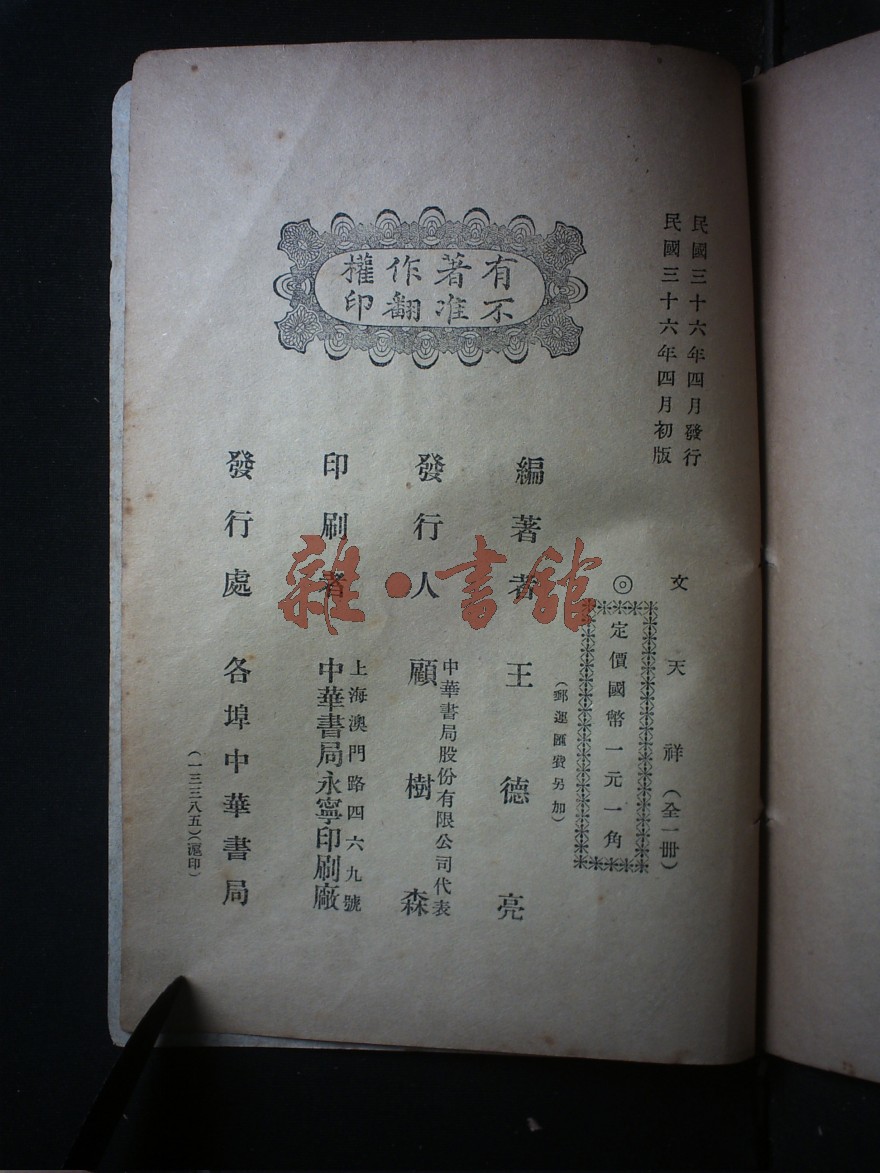 民國三十六年四月發行
民國三十六年四月初版
有著作權
不准翻印
文天祥（全一冊）
◎定價國幣一元一角
（郵運匯費另加）
編著者 王德亮
發行人 中華書局股份有限公司代表
顧樹森
印刷者 上海澳門路四六九號
中華書局永寧印刷廠
發行處 各埠中華書局
（一三三八五）（滬印）
雜·書館